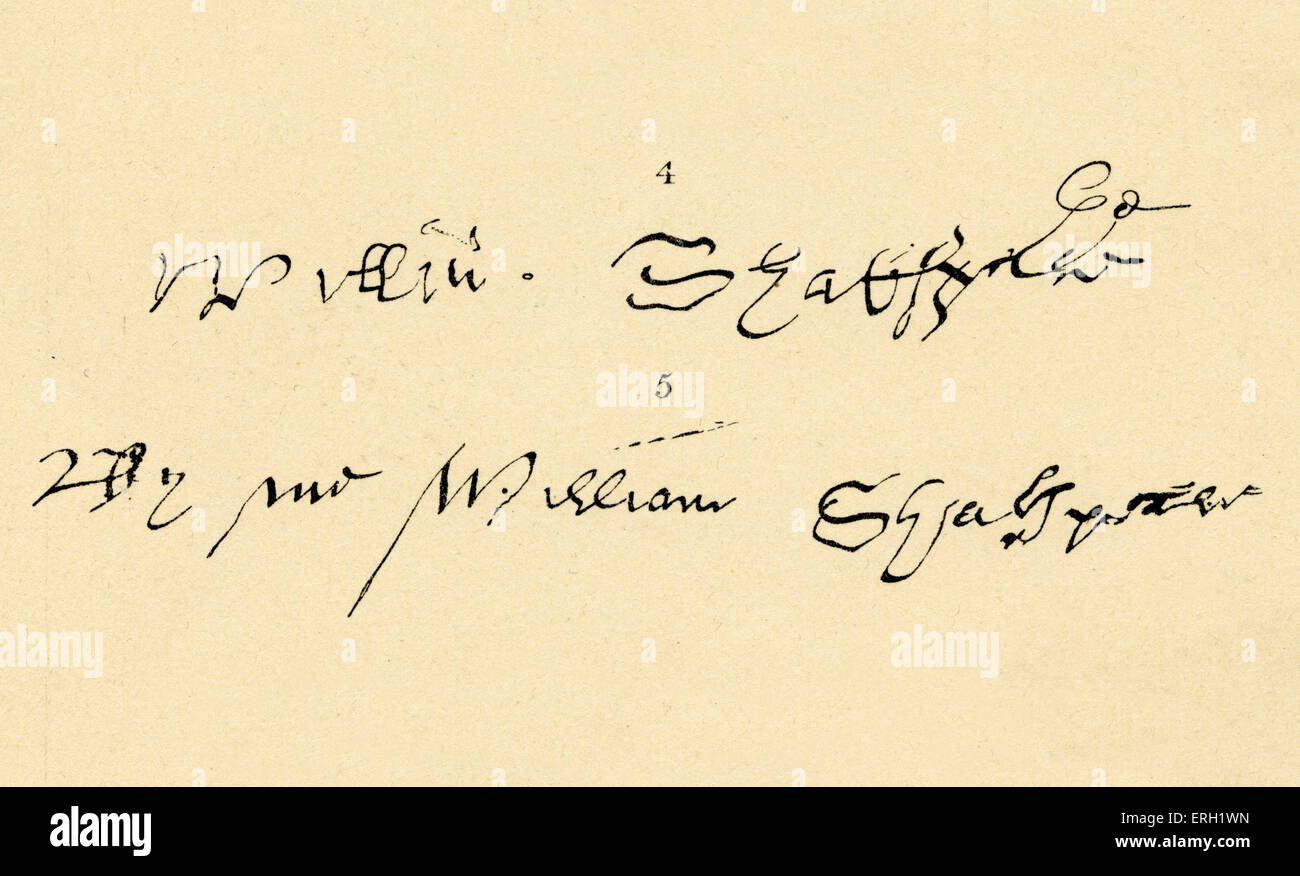 4
Willm. Shakspere
5
By me William Shakspeare
alamy
alamy
Image ID: ERH1WN
www.alamy.com